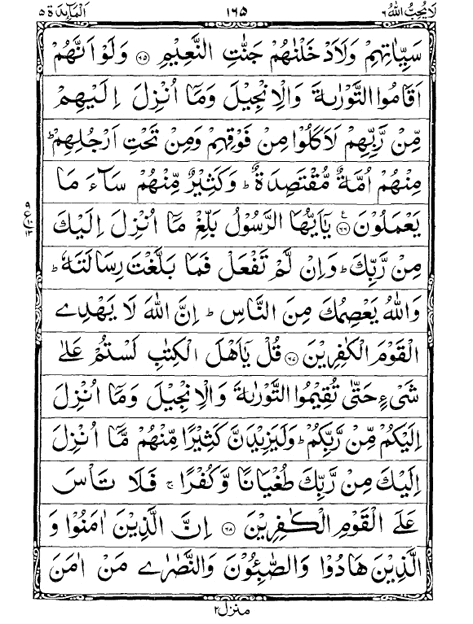 لَا يُحِبُّ اللهُ ٦ ١٦٥ اَلْمَآئِدَة ٥
سَيِّاٰتِهِمْ وَلَاَدْخَلْنٰهُمْ جَنّٰتِ النَّعِيْمِ ۝٦٥ وَلَوْ اَنَّهُمْ
اَقَامُوا التَّوْرٰىةَ وَالْاِنْجِيْلَ وَمَاۤ اُنْزِلَ اِلَيْهِمْ
مِّنْ رَّبِّهِمْ لَاَكَلُوْا مِنْ فَوْقِهِمْ وَمِنْ تَحْتِ اَرْجُلِهِمْ ؕ
مِنْهُمْ اُمَّةٌ مُّقْتَصِدَةٌ ؕ وَكَثِيْرٌ مِّنْهُمْ سَآءَ مَا
يَعْمَلُوْنَ ۝٦٦ يٰۤاَيُّهَا الرَّسُوْلُ بَلِّغْ مَاۤ اُنْزِلَ اِلَيْكَ
مِنْ رَّبِّكَ ؕ وَاِنْ لَّمْ تَفْعَلْ فَمَا بَلَّغْتَ رِسَالَتَهٗ ؕ
وَاللهُ يَعْصِمُكَ مِنَ النَّاسِ ؕ اِنَّ اللهَ لَا يَهْدِى
الْقَوْمَ الْكٰفِرِيْنَ ۝٦٧ قُلْ يٰۤاَهْلَ الْكِتٰبِ لَسْتُمْ عَلٰى
شَىْءٍ حَتّٰى تُقِيْمُوا التَّوْرٰىةَ وَالْاِنْجِيْلَ وَمَاۤ اُنْزِلَ
اِلَيْكُمْ مِّنْ رَّبِّكُمْ ؕ وَلَيَزِيْدَنَّ كَثِيْرًا مِّنْهُمْ مَّاۤ اُنْزِلَ
اِلَيْكَ مِنْ رَّبِّكَ طُغْيَانًا وَّكُفْرًا ۚ فَلَا تَاْسَ
عَلَى الْقَوْمِ الْكٰفِرِيْنَ ۝٦٨ اِنَّ الَّذِيْنَ اٰمَنُوْا وَ
الَّذِيْنَ هَادُوْا وَالصّٰبِـُٔوْنَ وَالنَّصٰرٰى مَنْ اٰمَنَ
منزل ٢